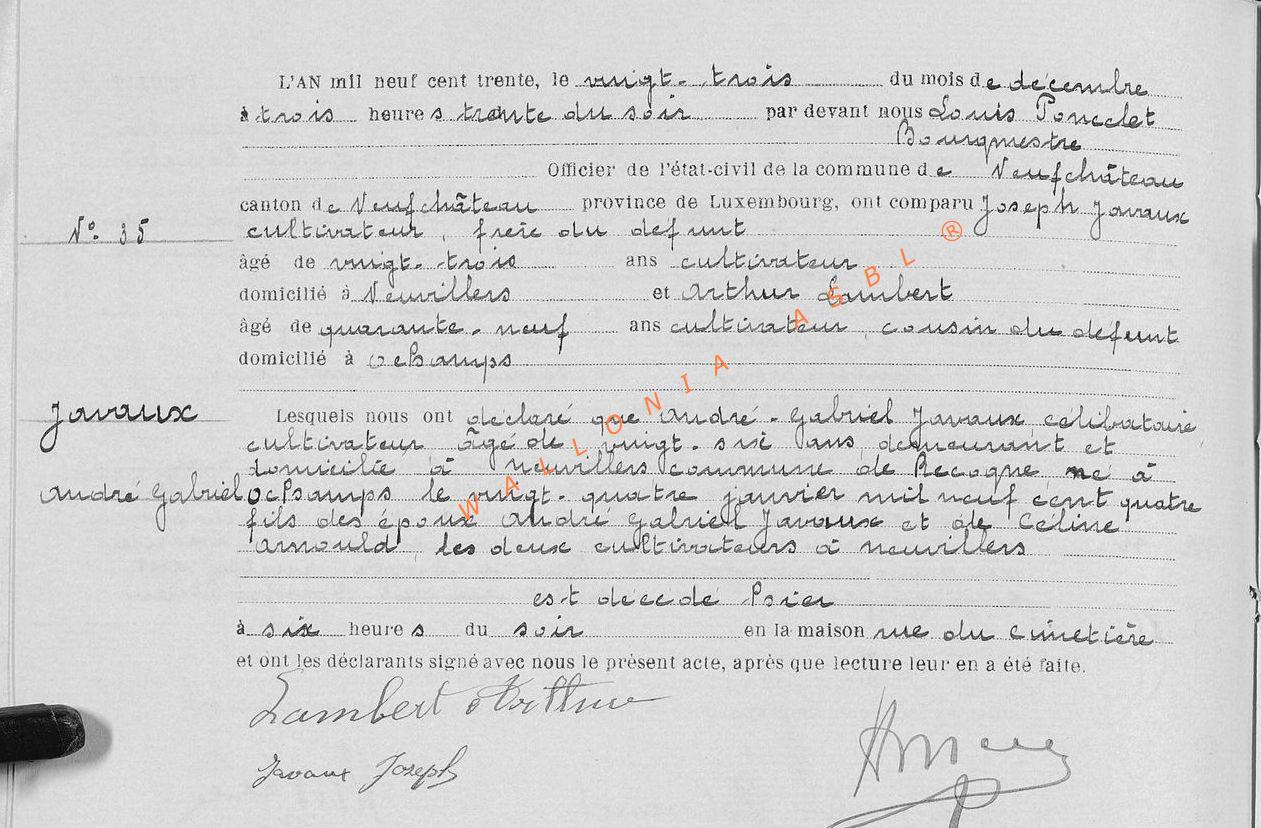 L'AN mil neuf cent trente, le vingt-trois du mois de décembre
à trois heures trente du soir par devant nous Louis Poncelet
Bourgmestre
Officier de l'état-civil de la commune de Neufchâteau
canton de Neufchâteau province de Luxembourg, ont comparu Joseph Javaux
N° 35
cultivateur, frère du défunt
âgé de vingt-trois ans cultivateur
domicilié à Neuvillers et Arthur Lambert
âgé de quarante-neuf ans cultivateur, cousin du défunt
domicilié à Ochamps
Javaux
Lesquels nous ont déclaré que André-Gabriel Javaux, célibataire
cultivateur âgé de vingt-six ans demeurant et
domicilié à Neuvillers commune de Recogne né à
André Gabriel
Ochamps le vingt-quatre janvier mil neuf cent quatre
fils des époux André Gabriel Javaux et de Céline
Arnould, les deux cultivateurs à Neuvillers
est décédé hier
à six heures du soir en la maison rue du Cimetière
et ont les déclarants signé avec nous le présent acte, après que lecture leur en a été faite.
Lambert Arthur
Javaux Joseph
WALLONIA ASBL ®